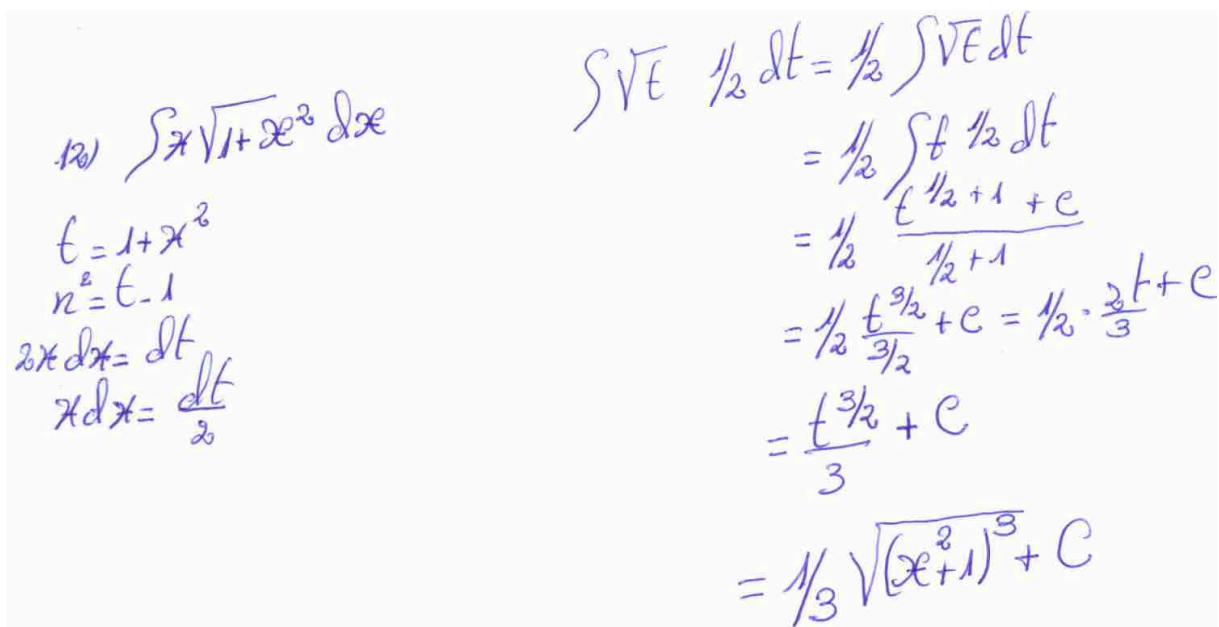 12) ∫x√1+x² dx
t = 1+x²
x² = t-1
2xdx = dt
xdx = dt/2
∫√t 1/2 dt = 1/2 ∫√t dt
= 1/2 ∫t 1/2 dt
= 1/2 t^1/2+1 + c / 1/2+1
= 1/2 t^3/2 / 3/2 + c = 1/2 · 2t/3 + c
= t^3/2 / 3 + C
= 1/3 √(x²+1)³ + C